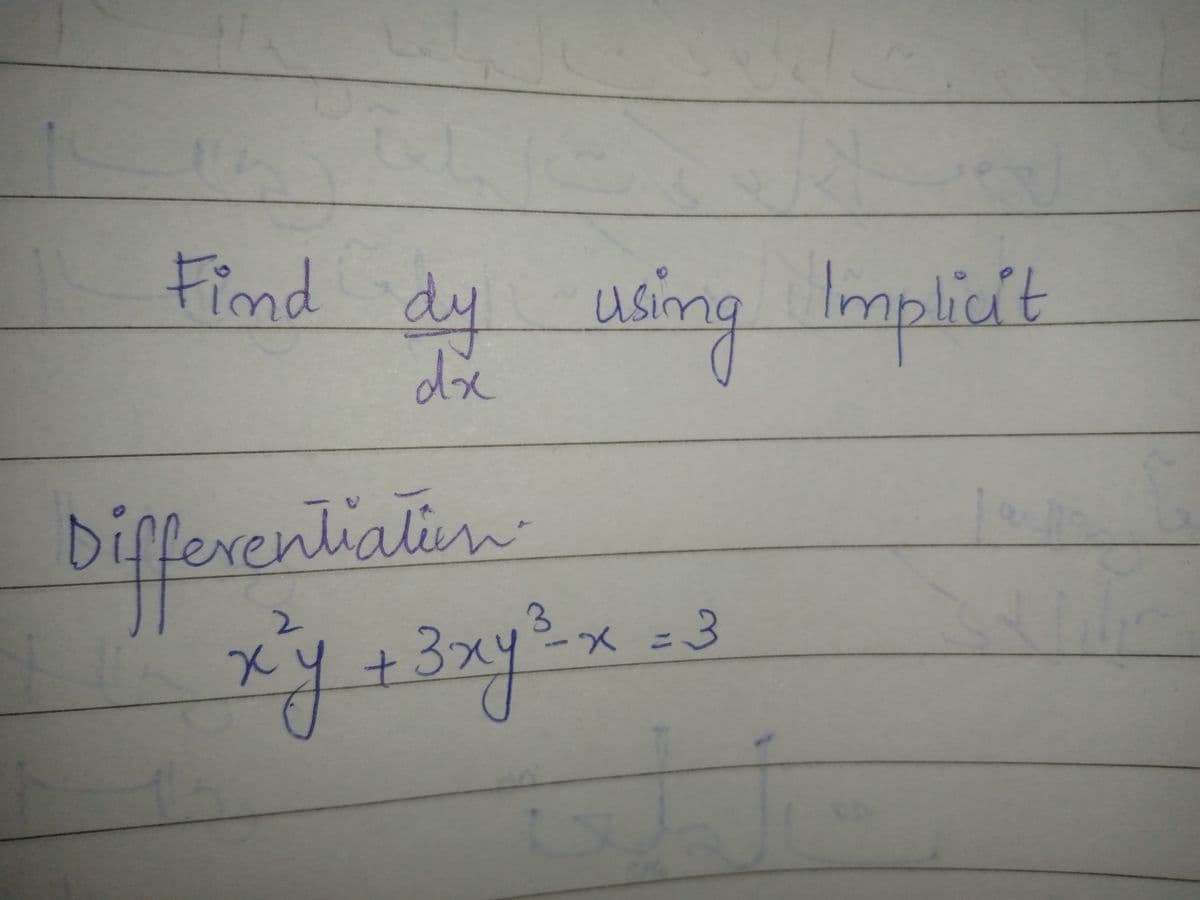 Find dy/dx using Implicit
Differentiation.
x²y + 3xy³ - x = 3